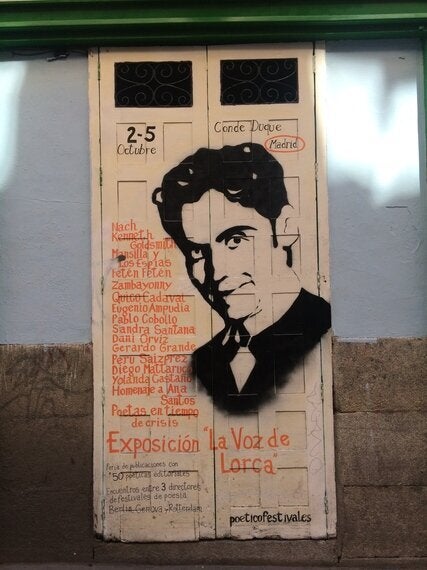 2-5
Octubre
Conde Duque
Madrid
Nach
Kenneth
Goldsmith
Mansilla y
los Espías
Fetén Fetén
Zambayonny
Quico Cadaval
Eugenio Ampudia
Pablo Cobollo
Sandra Santana
Dani Orviz
Gerardo Grande
Peru Saizprez
Diego Mattarucco
Yolanda Castaño
Homenaje a Ana
Santos
Poetas en tiempo
de crisis
Exposición "La Voz de
Lorca"
Feria de publicaciones con
50 poéticas editoriales
Encuentros entre 3 directores
de festivales de poesía
Berlín Genova y Rotterdam
poeticofestival.es